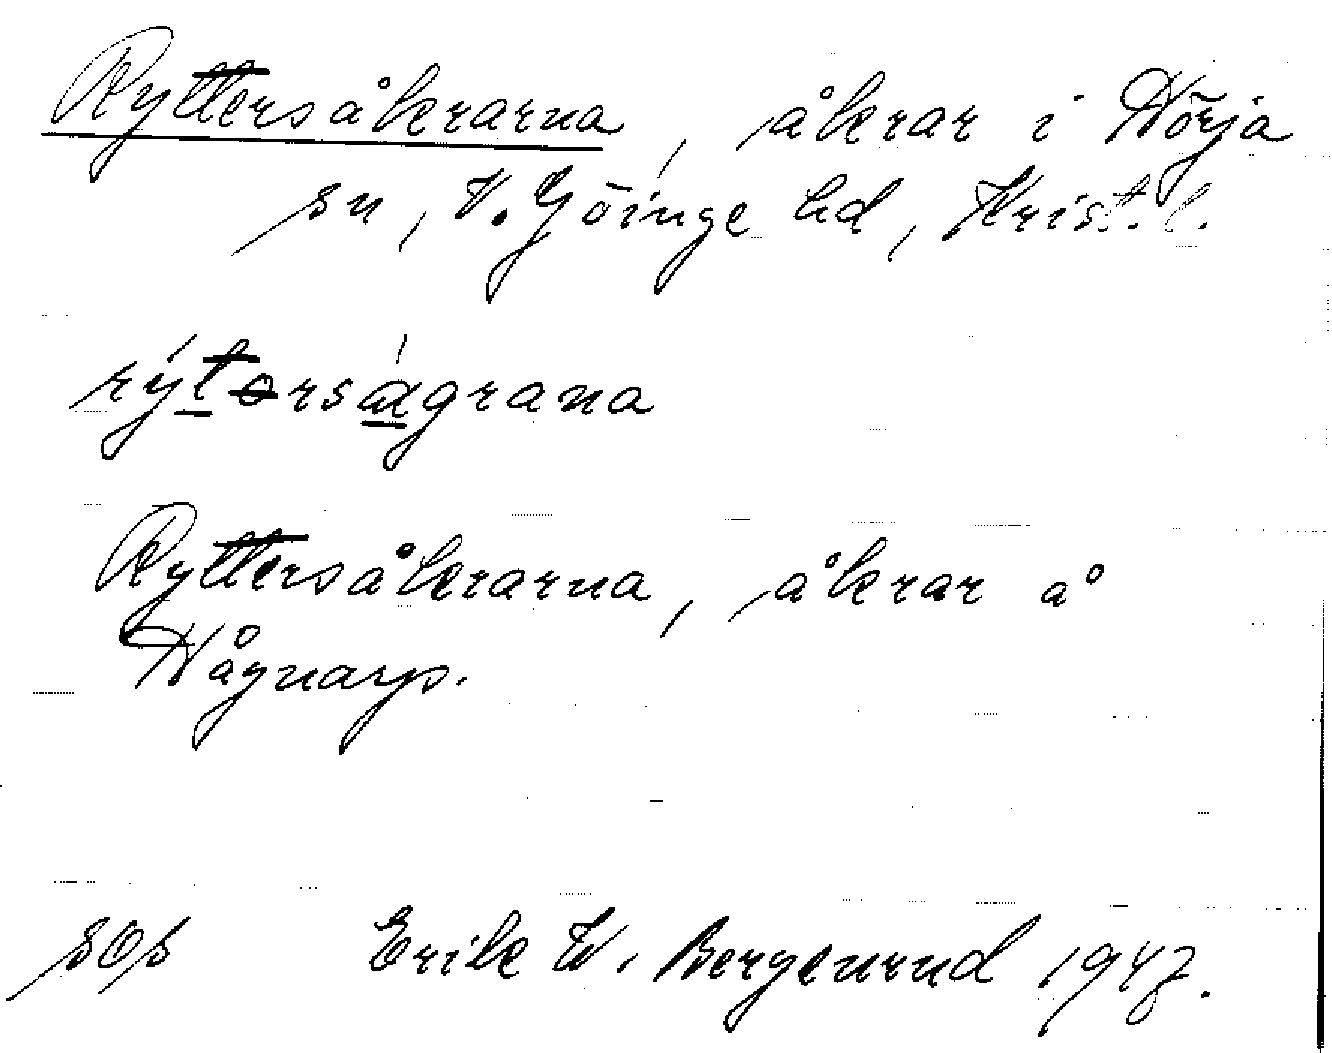 Ryttersåkrarna, åkrar i Nörja
sn, V. Göinge hd, Krist. l.
rýtərságrana
Ryttersåkrarna, åkrar å
Vågnarp.
Erik W. Bergstrand 1947.